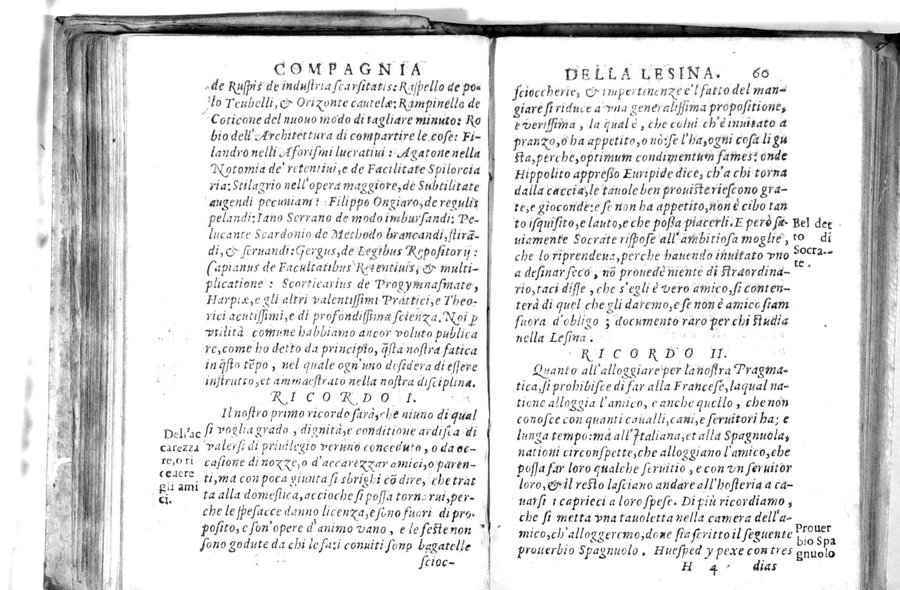 COMPAGNIA
de Ruspis de industria scarsitatis: Raspello de po-
lo Teubelli, & Orizonte cautelæ; Rampinello de
Coticone del nuouo modo di tagliare minuto: Ro
bio dell'Architettura di compartire le cose: Fi-
landro nelli Aforismi lucratiui: Agatone nella
Notomia de' retentiui, e de Facilitate Spilorcia
ria: Stilagrio nell'opera maggiore, de Subtilitate
augendi pecuniam: Filippo Ongiaro, de regulis
pelandi: Iano Serrano de modo imbursandi: Pe-
lucante Scardonio de Methodo brancandi, stirã-
di, & seruandi: Gergus, de Legibus Repositorij:
Capianus de Facultatibus Retentiuis, & multi-
plicatione: Scorticarius de Progymnasmate,
Harpiæ, e gli altri valentissimi Prattici, e Theo-
rici acutissimi, e di profondissima scienza. Noi p
vtilità comune habbiamo ancor voluto publica
re, come ho detto da principio, q̃sta nostra fatica
in q̃sto tẽpo, nel quale ogn'vno desidera di essere
instrutto, et ammaestrato nella nostra disciplina.
RICORDO I.
Il nostro primo ricordo sarà, che niuno di qual
si voglia grado, dignità, e conditione ardisca di
valersi di priuilegio veruno conceduto, o da oc-
casione di nozze, o d'accarezzar amici, o paren-
ti, ma con poca giunta si sbrighi cõ dire, che trat
ta alla domestica, accioche si possa tornarui, per-
che le spesacce danno licenza, e sono fuori di pro-
posito, e son'opere d'animo vano, e le feste non
sono godute da chi le fa; i conuiti sono bagatelle
scioc-
Dell'ac
carezza
re, o ri
ceuere
gli ami
ci.
DELLA LESINA. 60
scioccherie, & impertinenze e'l fatto del man-
giare si riduce a vna generalissima propositione,
e verissima, la qual è, che colui ch'è inuitato a
pranzo, o ha appetito, o nò: se l'ha, ogni cosa li gu
sta, perche, optimum condimentum fames: onde
Hippolito appresso Euripide dice, ch'a chi torna
dalla caccia, le tauole ben prouiste riescono gra-
te, e gioconde: e se non ha appetito, non è cibo tan
to isquisito, e lauto, e che possa piacerli. E però sa-
uiamente Socrate rispose all'ambitiosa moglie,
che lo riprendeua, perche hauendo inuitato vno
a desinar seco, nõ prouedè niente di straordina-
rio, taci disse, che s'egli è vero amico, si conten-
terà di quel che gli daremo, e se non è amico siam
fuora d'obligo; documento raro per chi studia
nella Lesina.
Bel det
to di
Socra-
te.
RICORDO II.
Quanto all'alloggiare per la nostra Pragma-
tica, si prohibisce di far alla Francese, la qual na-
tione alloggia l'amico, e anche quello, che non
conosce con quanti caualli, cani, e seruitori ha; e
lunga tempo: mà all'Italiana, et alla Spagnuola,
nationi circonspette, che alloggiano l'amico, che
possa far loro qualche seruitio, e con vn seruitor
loro, & il resto lasciano andare all'hosteria a ca-
uarsi i caprieci a loro spese. Di più ricordiamo,
che si metta vna tauoletta nella camera dell'a-
mico, ch'alloggeremo, doue sia scritto il seguente
prouerbio Spagnuolo. Huesped y pexe con tres
H 4 dias
Prouer
bio Spa
gnuolo